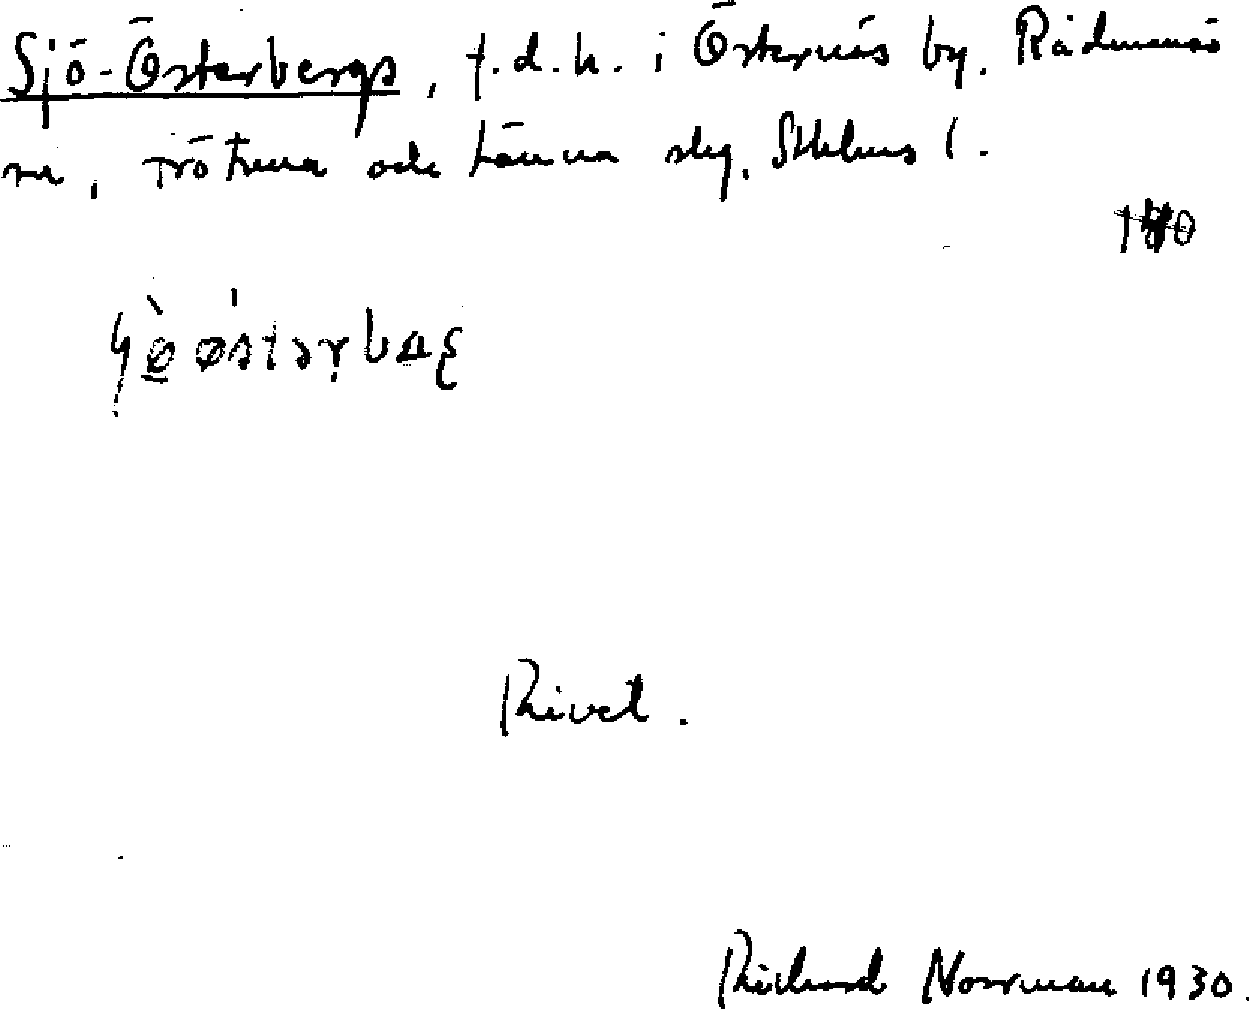 Sjö-Österbergs, f.d.h. i Östernäs by. Rådmansö
sn, Frötuna och Länna slg. Sthlms l.
Rivet.
Richard Norrman 1930.